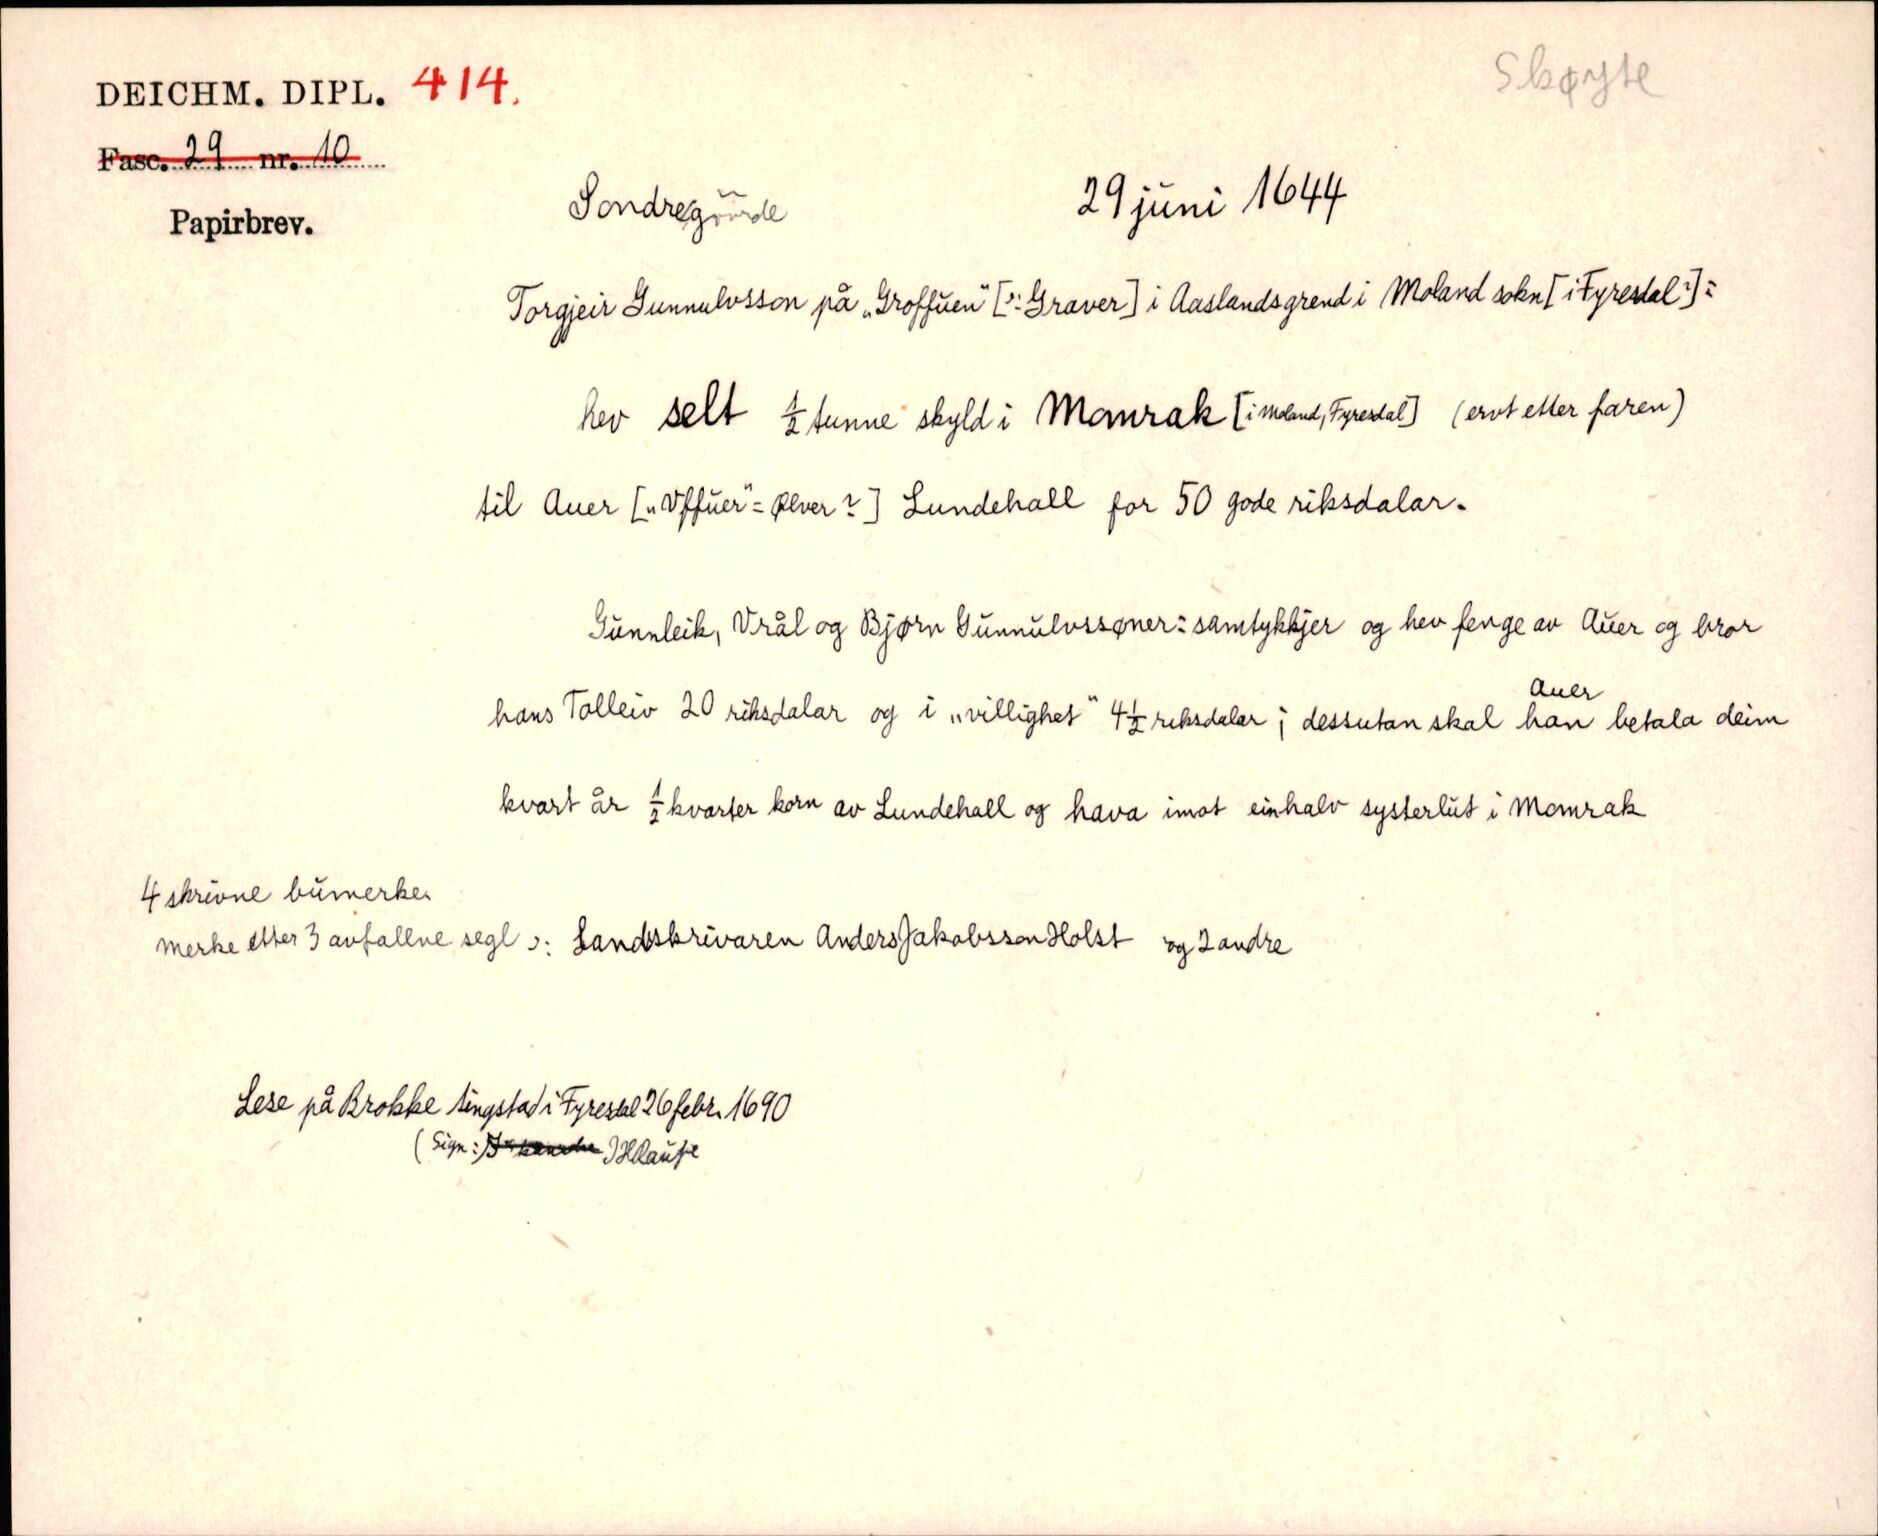 DEICHM. DIPL. 414.
Skøyte
Fasc. 29 nr. 10
Papirbrev.
Sondregåårde
29 juni 1644
Torgjeir Gunnulvsson på „Groffuen" [ɔ: Graver] i Aaslandsgrend i Moland sokn [i Fyresdal?]:
hev selt 1/2 tunne skyld i Momrak [i Moland, Fyresdal] (ervt etter faren)
til Auer [„Vffuer" = Ølver?] Lundehall for 50 gode riksdalar.
Gunnleik, Vrål og Bjørn Gunnulvssøner: samtykkjer og hev fenge av Auer og bror
hans Tolleiv 20 riksdalar og i „villighet" 4 1/2 riksdalar; dessutan skal han betala deim
Auer
kvart år 1/2 kvarter korn av Lundehall og hava imot ein halv systerlut i Momrak
4 skrivne bumerke.
Merke etter 3 avfallne segl ɔ: Landskrivaren Anders Jakobsson Holst og 2 andre
Lese på Brokke tingstad i Fyresdal 26 febr. 1690
(Sign:) JHRaupe